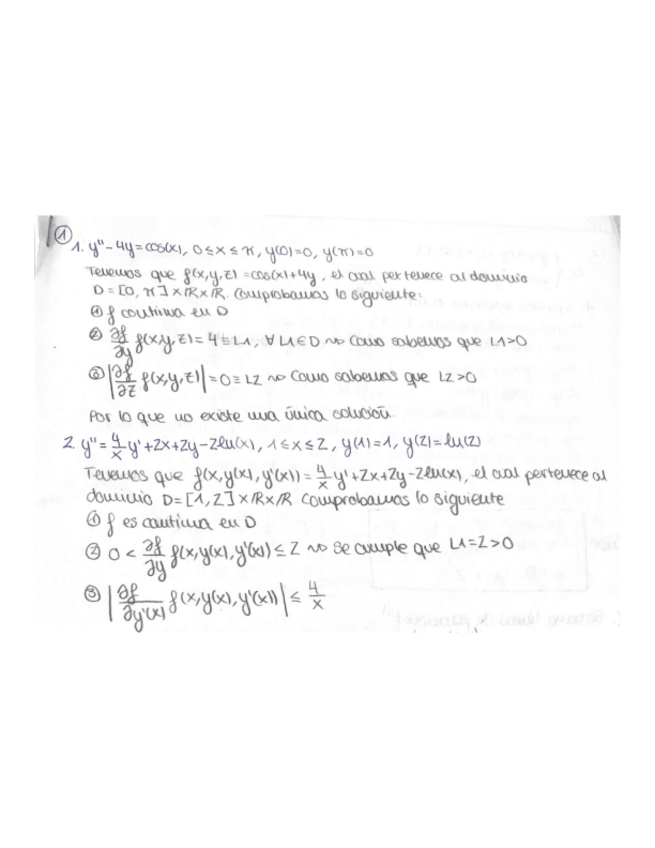 ①
1. y'' - 4y = cos(x), 0 ≤ x ≤ π, y(0)=0, y(π)=0
Tenemos que f(x,y,z) = cos(x)+4y, el cual pertenece al dominio
D = [0, π] x ℝ x ℝ. Comprobamos lo siguiente:
① f continua en D
② ∂f/∂y f(x,y,z) = 4 ≡ L1, ∀ L1 ∈ D ⇝ Como sabemos que L1>0
③ |∂f/∂z f(x,y,z)| = 0 ≡ L2 ⇝ Como sabemos que L2>0
Por lo que no existe una única solución.
2. y'' = 4/x y' + 2x + 2y - 2ln(x), 1 ≤ x ≤ 2, y(1)=1, y(2)=ln(2)
Tenemos que f(x,y(x),y'(x)) = 4/x y' + 2x + 2y - 2ln(x), el cual pertenece al
dominio D = [1, 2] x ℝ x ℝ. Comprobamos lo siguiente
① f es continua en D
② 0 < ∂f/∂y f(x,y(x),y'(x)) ≤ 2 ⇝ Se cumple que L1=2>0
③ |∂f/∂y'(x) f(x,y(x),y'(x))| ≤ 4/x